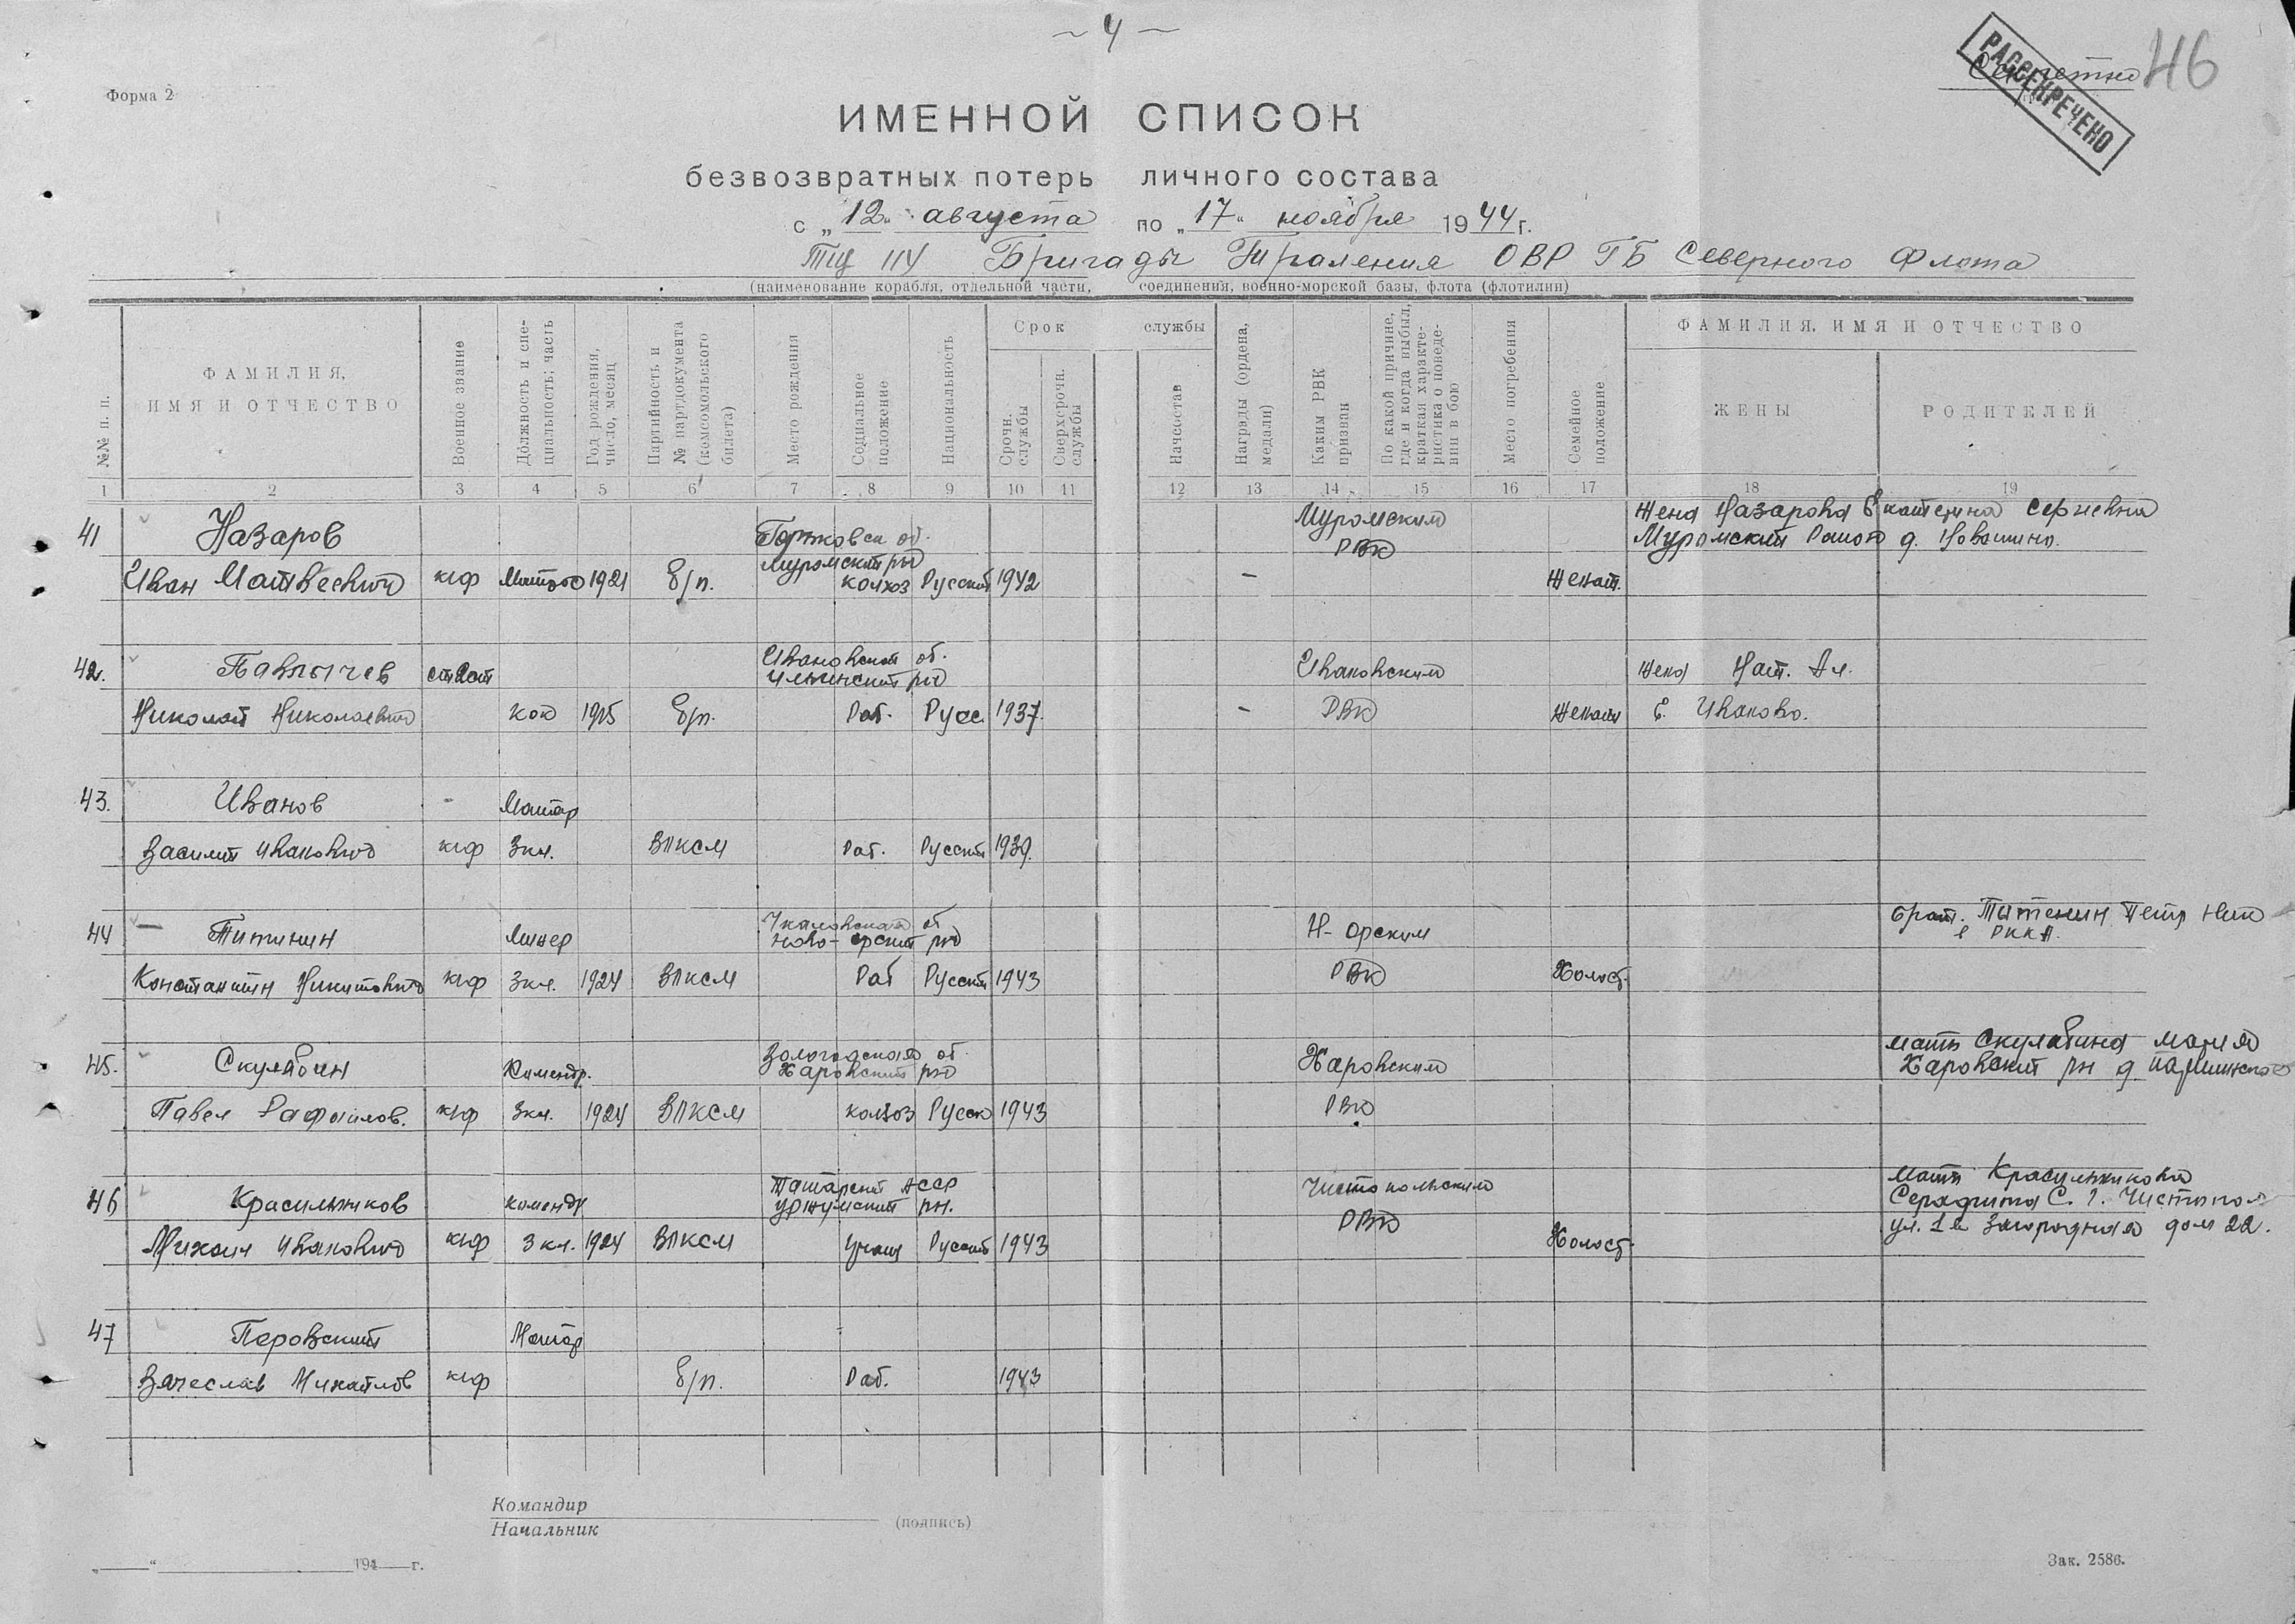 ~ 4 ~
Форма 2
Секретно 46
РАССЕКРЕЧЕНО
ИМЕННОЙ СПИСОК
безвозвратных потерь личного состава
с „12“ августа по „17“ ноября 1944 г.
ТЩ 114 Бригады Траления ОВР ГБ Северного Флота
(наименование корабля, отдельной части, соединения, военно-морской базы, флота (флотилии)
№№ п. п.
ФАМИЛИЯ,
ИМЯ И ОТЧЕСТВО
Военное звание
Должность и спе-
циальность; часть
Год рождения,
число, месяц
Партийность и
№ партдокумента
(комсомольского
билета)
Место рождения
Социальное
положение
Национальность
Срок службы
Срочн.
службы
Сверхсрочн.
службы
Начсостав
Награды (ордена,
медали)
Каким РВК
призван
По какой причине,
где и когда выбыл,
краткая характе-
ристика о поведе-
нии в бою
Место погребения
Семейное
положение
ФАМИЛИЯ, ИМЯ И ОТЧЕСТВО
ЖЕНЫ
РОДИТЕЛЕЙ
1 2 3 4 5 6 7 8 9 10 11 12 13 14 15 16 17 18 19
41 Назаров Муромским Жена Назарова Екатерина Сергеевна
Горьковск об. РВК Муромский Район д.
Муромский рн
Иван Матвеевич к-ф 1921 б/п. колхоз Русский 1942 – Женат.
42. Павлычев Ивановской об. Ивановским Жена Нат. Ал.
Ильинский рн
Николай Николаевич кок 1915 б/п. Раб. Русс. 1937. – РВК Женат г. Иваново.
43. Иванов –
Василий Иванович к-ф 3 кл. ВЛКСМ Раб. Русский 1939.
44 – Питинин Минер Чкаловская об Н-Орским брат. Петр Ник
Ново-орский рн в РККА.
Константин Никитович к-ф 3 кл. 1924 ВЛКСМ Раб Русский 1943 РВК Холост.
45. Скулябин Комендр. Вологодская об. Харовским мать Скулябина Мария
Харовский рн Харовский рн д.
Павел Рафаилов. к-ф 3 кл. 1924 ВЛКСМ колхоз Русск 1943 РВК
46 Красильников коменд Татарской АССР Чистопольским Мать Красильникова
рн. РВК Серафима С. г. Чистопол
Михаил Иванович к-ф 3 кл. 1924 ВЛКСМ Учащ Русский 1943 Холост. ул. 1я Загородная дом 22.
47 Перовский
Вячеслав Михайлов к-ф б/п. Раб. 1943
Командир
Начальник
(подпись)
„ “ 194 г.
Зак. 2586.